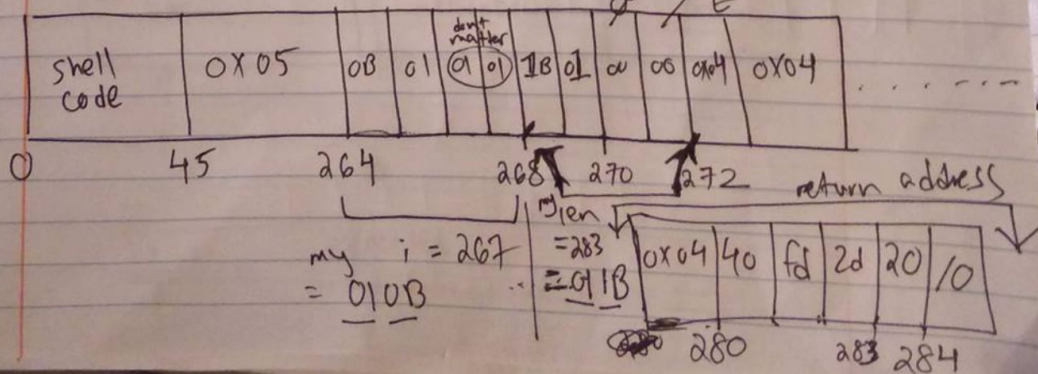 don't
matter
shell code 0x05 0B 01 01 01 1B 01 00 00 0x04 0x04 . . . . . .
0 45 264 268 270 272
return address
my i = 267
= 010B
my len
= 283
= 011B
0x04 40 fd 2d 20 10
280 283 284